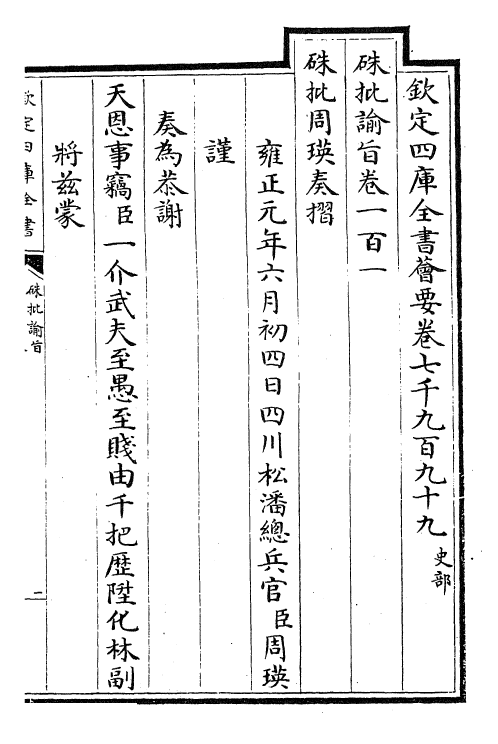 欽定四庫全書薈要卷七千九百九十九 史部
硃批諭旨卷一百一
硃批周瑛奏摺
雍正元年六月初四日四川松潘總兵官臣周瑛
謹
奏為恭謝
天恩事竊臣一介武夫至愚至賤由千把歷陞化林副
將茲蒙
欽定四庫全書
硃批諭旨